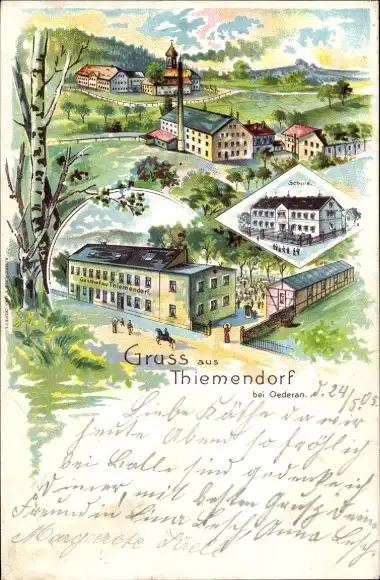 Schule.
Gasthof zu Thiemendorf.
Gruss aus
Thiemendorf
bei Oederan.
d. 24/5 05
Liebe Käthe da wir
heute Abend so fröhlich
bei Balle sind gedenke ich
Deiner mit besten Gruß Deine
Freundin Lina Lesch, Anna Lesch,
Margarete